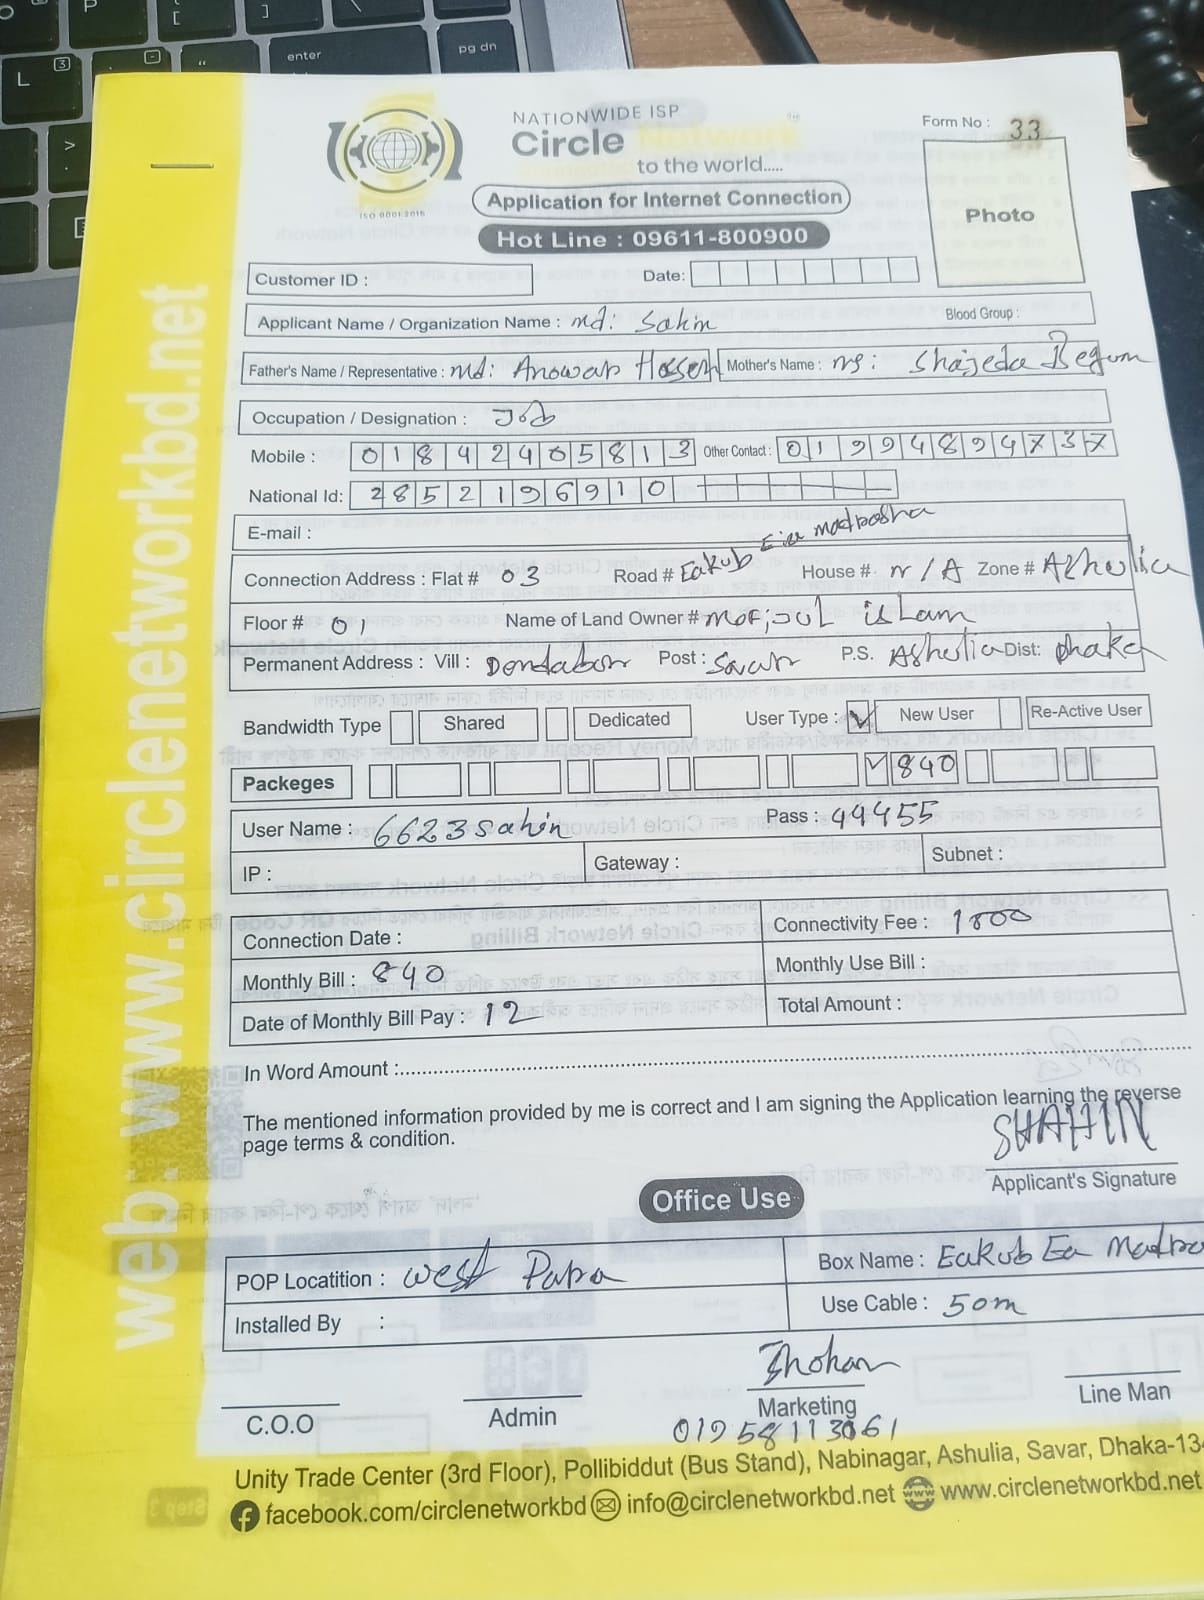 NATIONWIDE ISP
Circle Network
to the world.....
ISO 9001:2015
Form No : 33
Application for Internet Connection
Hot Line : 09611-800900
Photo
Customer ID :
Date:
Applicant Name / Organization Name : md: Sahin
Blood Group :
Father's Name / Representative : md: Anowar Hossen
Mother's Name : ms: Shajeda Begum
Occupation / Designation : Job
Mobile : 01842405813
Other Contact : 01994894737
National Id: 2852196910
E-mail :
Connection Address : Flat # 03 Road # Eakub Eia madrasha House # N/A Zone # Ashulia
Floor # 01 Name of Land Owner # islam
Permanent Address : Vill : Post : Savar P.S. Ashulia Dist: Dhaka
Bandwidth Type Shared Dedicated User Type : New User Re-Active User
Packeges 840
User Name : 6623sahin Pass : 44455
IP : Gateway : Subnet :
Connection Date : Connectivity Fee : 1000
Monthly Bill : 840 Monthly Use Bill :
Date of Monthly Bill Pay : 12 Total Amount :
In Word Amount :
The mentioned information provided by me is correct and I am signing the Application learning the reverse
page terms & condition.
SHAHIN
Applicant's Signature
Office Use
POP Locatition : West Para
Box Name : Eakub Ea Madra
Installed By :
Use Cable : 50m
C.O.O
Admin
Marketing
Line Man
Unity Trade Center (3rd Floor), Pollibiddut (Bus Stand), Nabinagar, Ashulia, Savar, Dhaka-13
facebook.com/circlenetworkbd info@circlenetworkbd.net www.circlenetworkbd.net
web: www.circlenetworkbd.net
enter
pg dn
L
P